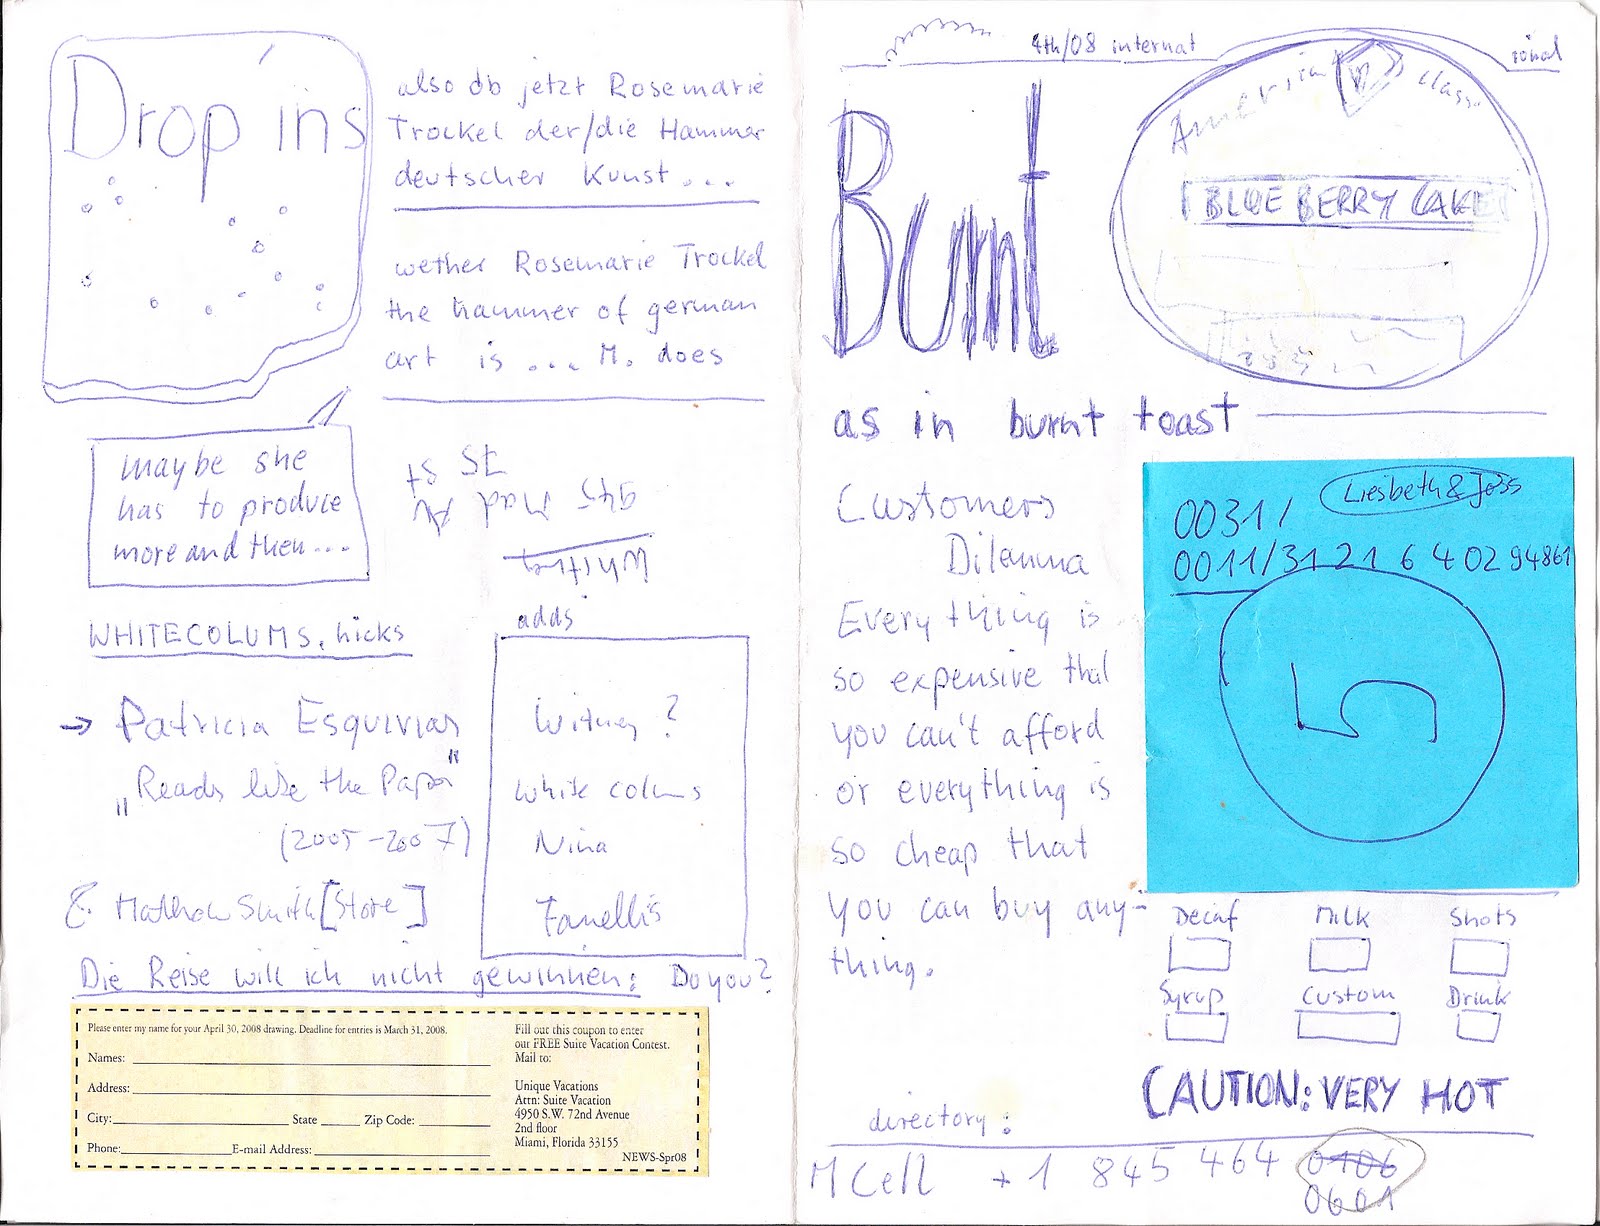 Drop ins
also ob jetzt Rosemarie
Trockel der/die Hammer
deutscher Kunst...
wether Rosemarie Trockel
the hammer of german
art is ... M. does
maybe she
has to produce
more and then...
Whitney
945 Mad. Av
75 St
WHITECOLUMS. hicks
→ Patricia Esquivias
„Reads like the Paper"
(2005-2007)
& Matthew Smith [Store]
adds
Witney ?
White colums
Nina
Fanelli's
Die Reise will ich nicht gewinnen: Do you?
Please enter my name for your April 30, 2008 drawing. Deadline for entries is March 31, 2008.
Names:
Address:
City: State Zip Code:
Phone: E-mail Address:
Fill out this coupon to enter
our FREE Suite Vacation Contest.
Mail to:
Unique Vacations
Attn: Suite Vacation
4950 S.W. 72nd Avenue
2nd floor
Miami, Florida 33155
NEWS-Spr08
4th/08 international
Burnt
classic
BLUE BERRY CAKE
as in burnt toast
Customers
Dilemma
Everything is
so expensive that
you can't afford
or everything is
so cheap that
you can buy any-
thing.
Liesbeth & Joss
0031/
0011/31 21 6 4 02 94861
5
Decaf Milk Shots
Syrup Custom Drink
CAUTION: VERY HOT
directory:
M Cell +1 845 464 0106
0601